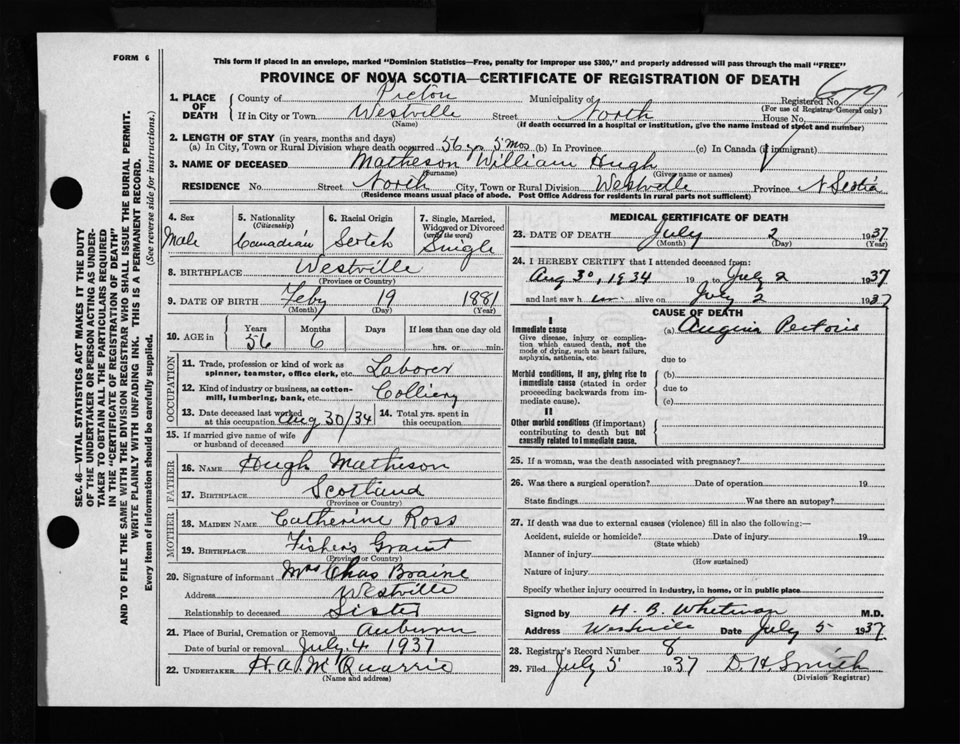 FORM 6
This form if placed in an envelope, marked "Dominion Statistics—Free, penalty for improper use $300," and properly addressed will pass through the mail "FREE"
PROVINCE OF NOVA SCOTIA—CERTIFICATE OF REGISTRATION OF DEATH
1. PLACE OF DEATH County of Pictou Municipality of Registered No. 679
(For use of Registrar General only)
If in City or Town Westville Street North House No.
(Name) (If death occurred in a hospital or institution, give the name instead of street and number)
2. LENGTH OF STAY (in years, months and days)
(a) In City, Town or Rural Division where death occurred 56 yrs 5 mos (b) In Province (c) In Canada (if immigrant)
3. NAME OF DECEASED Matheson William Hugh
(Surname) (Given name or names)
RESIDENCE No. Street North City, Town or Rural Division Westville Province N Scotia
(Residence means usual place of abode. Post Office Address for residents in rural parts not sufficient)
4. Sex
Male
5. Nationality
(Citizenship)
Canadian
6. Racial Origin
Scotch
7. Single, Married, Widowed or Divorced
(write the word)
Single
8. BIRTHPLACE Westville
(Province or Country)
9. DATE OF BIRTH Feby 19 1881
(Month) (Day) (Year)
10. AGE in Years Months Days If less than one day old
56 6 hrs. or min.
OCCUPATION
11. Trade, profession or kind of work as
spinner, teamster, office clerk, etc. Laborer
12. Kind of industry or business, as cotton-
mill, lumbering, bank, etc. Colliery
13. Date deceased last worked
at this occupation Aug 30/34 14. Total yrs. spent in
this occupation
15. If married give name of wife
or husband of deceased
FATHER
16. NAME Hugh Matheson
17. BIRTHPLACE Scotland
(Province or Country)
MOTHER
18. MAIDEN NAME Catherine Ross
19. BIRTHPLACE Fisher's Grant
(Province or Country)
20. Signature of informant Mrs Chas Braine
Address Westville
Relationship to deceased Sister
21. Place of Burial, Cremation or Removal Auburn
Date of burial or removal July 4 1937
22. UNDERTAKER H. A. McQuarrie
(Name and address)
MEDICAL CERTIFICATE OF DEATH
23. DATE OF DEATH July 2 1937
(Month) (Day) (Year)
24. I HEREBY CERTIFY that I attended deceased from:
Aug 30, 1934 19 to July 2 1937
and last saw him alive on July 2 1937
CAUSE OF DEATH
I
Immediate cause (a) Angina Pectoris
Give disease, injury or complica-
tion which caused death, not the
mode of dying, such as heart failure,
asphyxia, asthenia, etc. due to
Morbid conditions, if any, giving rise to (b)
immediate cause (stated in order due to
proceeding backwards from im-
mediate cause). (c)
II
Other morbid conditions (if important)
contributing to death but not
causally related to immediate cause.
25. If a woman, was the death associated with pregnancy?
26. Was there a surgical operation? Date of operation 19
State findings Was there an autopsy?
27. If death was due to external causes (violence) fill in also the following:—
Accident, suicide or homicide? Date of injury 19
(State which)
Manner of injury
(How sustained)
Nature of injury
Specify whether injury occurred in industry, in home, or in public place
Signed by H. B. Whitman M.D.
Address Westville Date July 5 1937
28. Registrar's Record Number 8
29. Filed July 5 1937 D. H. Smith
(Division Registrar)
SEC. 46—VITAL STATISTICS ACT MAKES IT THE DUTY
OF THE UNDERTAKER OR PERSON ACTING AS UNDER-
TAKER TO OBTAIN ALL THE PARTICULARS REQUIRED
IN THE "CERTIFICATE OF REGISTRATION OF DEATH"
AND TO FILE THE SAME WITH THE DIVISION REGISTRAR WHO SHALL ISSUE THE BURIAL PERMIT.
WRITE PLAINLY WITH UNFADING INK. THIS IS A PERMANENT RECORD.
Every item of information should be carefully supplied. (See reverse side for instructions.)